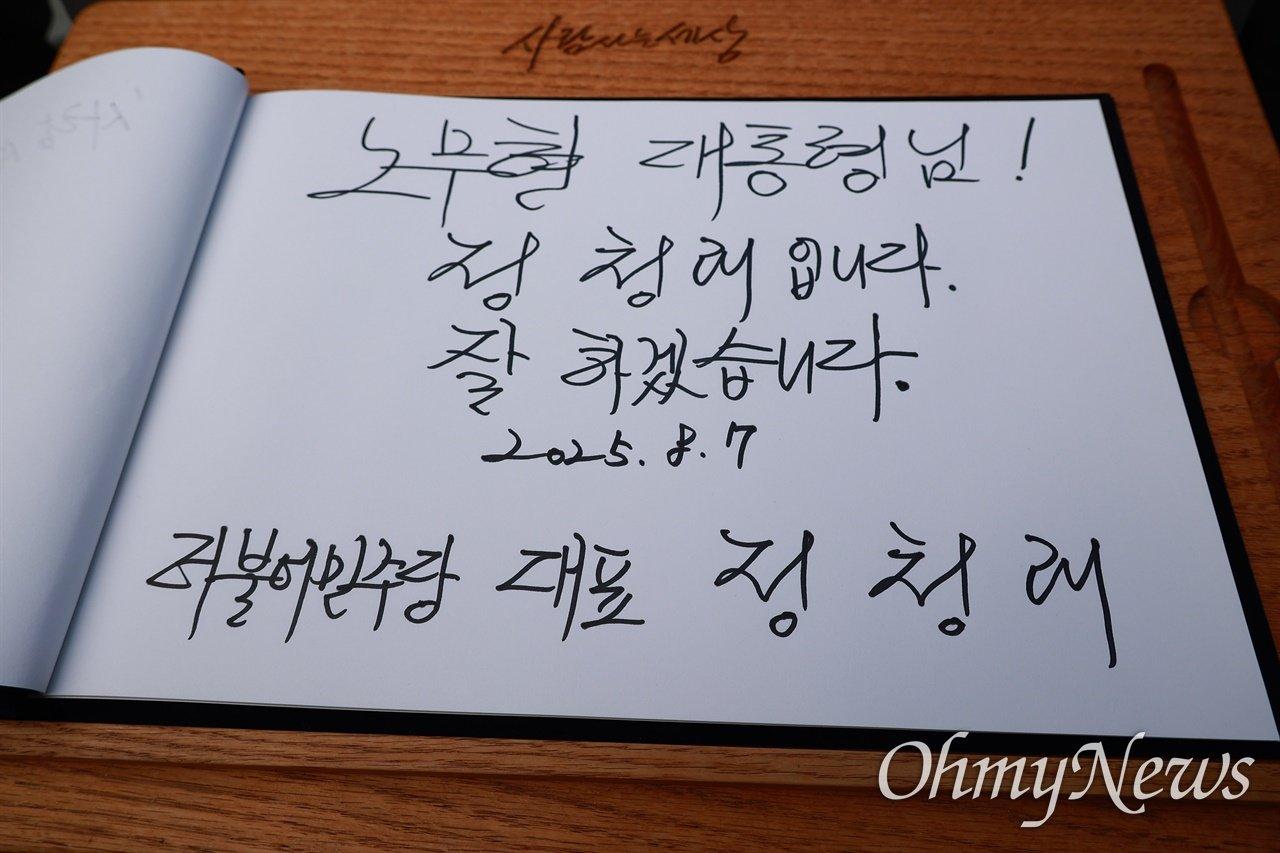 사람사는세상
노무현 대통령님!
정청래입니다.
잘 하겠습니다.
2025. 8. 7
더불어민주당 대표 정청래
OhmyNews